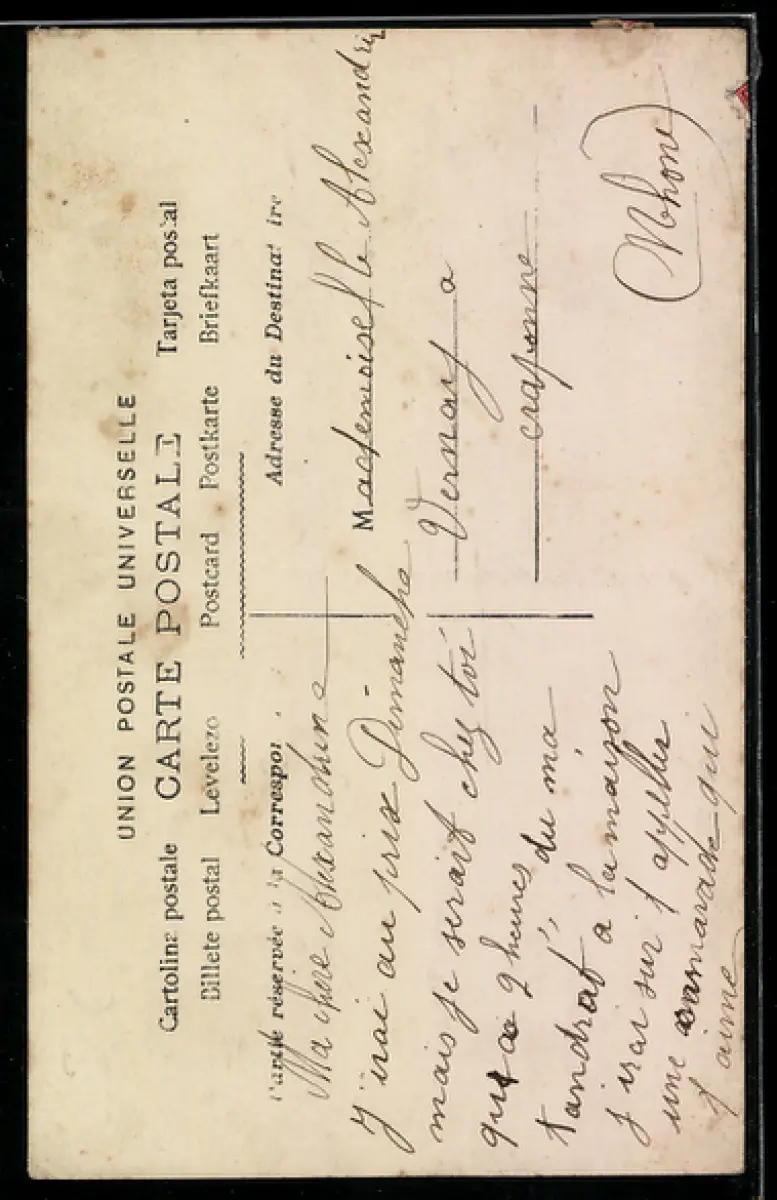 UNION POSTALE UNIVERSELLE
CARTE POSTALE
Cartolina postale
Tarjeta postal
Billete postal Levelezo Postcard Postkarte Briefkaart
Partie réservée à la Correspon
Adresse du Destinataire
Ma chère Alexandrine
J'irai au prix Dimanche
mais je serait chez toi
qu'a 9 heures du
tu m'a
tandrat à la maison
j'irai sur t'apeller
une camarade qui
t'aime
Mademoiselle Alexandri
Vernay a
craponne
(Rhone)